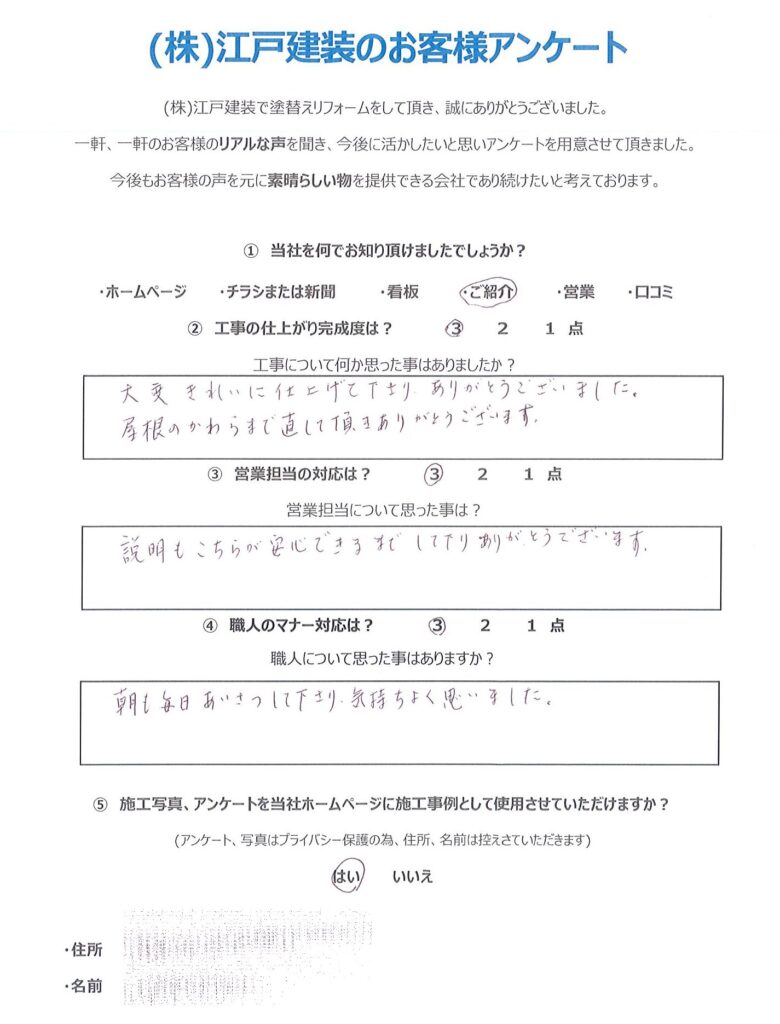 (株)江戸建装のお客様アンケート
(株)江戸建装で塗替えリフォームをして頂き、誠にありがとうございました。
一軒、一軒のお客様のリアルな声を聞き、今後に活かしたいと思いアンケートを用意させて頂きました。
今後もお客様の声を元に素晴らしい物を提供できる会社であり続けたいと考えております。
① 当社を何でお知り頂けましたでしょうか？
・ホームページ ・チラシまたは新聞 ・看板 ・ご紹介 ・営業 ・口コミ
② 工事の仕上がり完成度は？ 3 2 1 点
工事について何か思った事はありましたか？
大変きれいに仕上げて下さり、ありがとうございました。
屋根のかわらまで直して頂きありがとうございます。
③ 営業担当の対応は？ 3 2 1 点
営業担当について思った事は？
説明もこちらが安心できるまでして下りありがとうございます。
④ 職人のマナー対応は？ 3 2 1 点
職人について思った事はありますか？
朝も毎日あいさつして下さり、気持ちよく思いました。
⑤ 施工写真、アンケートを当社ホームページに施工事例として使用させていただけますか？
(アンケート、写真はプライバシー保護の為、住所、名前は控えさていただきます)
はい いいえ
・住所
・名前